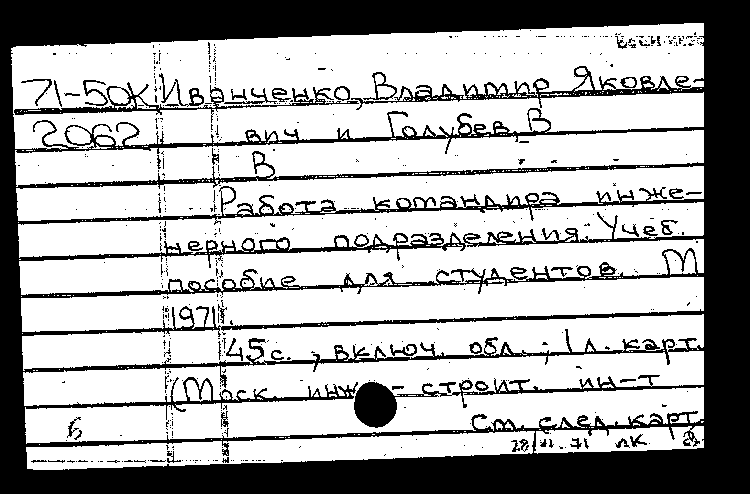 71-50Ж Иванченко, Владимир Яковле-
2062 вич и Голубев, В
В
Работа командира инже-
нерного подразделения: Учеб.
пособие для студентов. М
1971.
45с., включ. обл.; 1л. карт.
(Моск. инж.-строит. ин-т
Б См. след. карт
71 ЛК